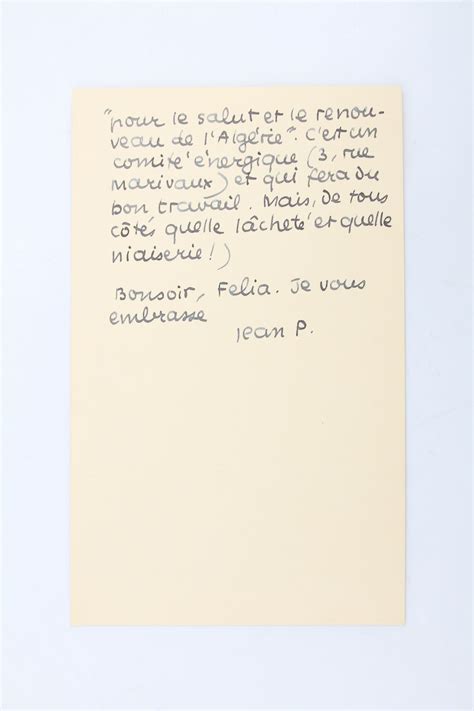 "pour le salut et le renou-
veau de l'Algérie". C'est un
comité énergique (3, rue
Marivaux) et qui fera du
bon travail. Mais, de tous
côtés quelle lâcheté et quelle
niaiserie!)
Bonsoir, Felia. Je vous
embrasse
Jean P.